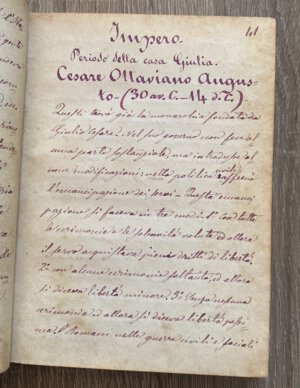 41
Impero.
Periodo della casa Giulia.
Cesare Ottaviano Augus-
to - (30 av. C. - 14 d. C.)
Questi trovò già la monarchia fondata da
Giulio Cesare. Nel suo governo non fece al
cuna parte sostanziale, ma introdusse al
cune modificazioni nella politica civile
l'emancipazione dei servi - Questa eman
pazione si faceva in tre modi. 1° Con tutte
le cerimonie e le solennità volute ed allora
il servo acquistava pieni diritti di libertà
2° con alcune cerimonie soltanto, ed allora
si diceva libertà minore. 3° Senza nessuna
cerimonia ed allora si diceva libertà pessi
ma. I Romani nelle guerre civili e sociali